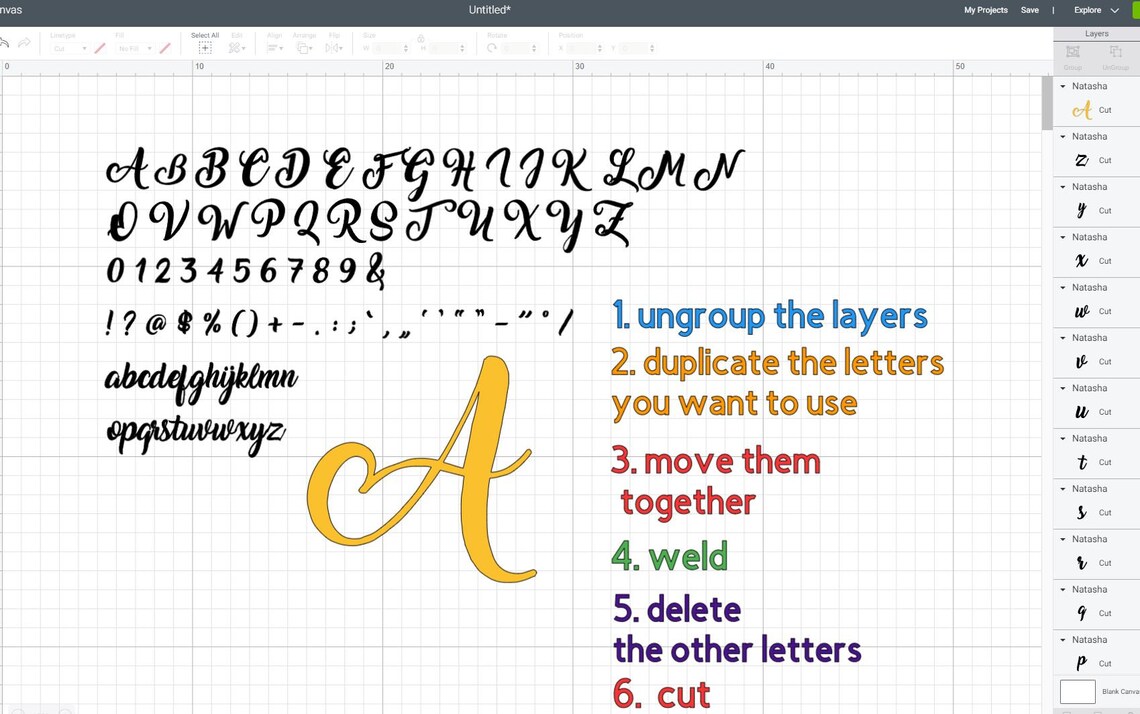 nvas
Untitled*
My Projects Save | Explore
Linetype Fill Select All Edit Align Arrange Flip Size Rotate Position
Cut No Fill W H X Y
0 10 20 30 40 50
Layers
Group UnGroup
A B B C D E F G H I J K L M N
O V W P Q R S T U X Y Z
0 1 2 3 4 5 6 7 8 9 &
! ? @ $ % ( ) + - . : ; ` , „ ´ ‘ ’ “ ” – " ° /
abcdefghijklmn
opqrstuvwxyz
A
1. ungroup the layers
2. duplicate the letters
you want to use
3. move them
together
4. weld
5. delete
the other letters
6. cut
Natasha
A Cut
Natasha
z Cut
Natasha
y Cut
Natasha
x Cut
Natasha
w Cut
Natasha
v Cut
Natasha
u Cut
Natasha
t Cut
Natasha
s Cut
Natasha
r Cut
Natasha
q Cut
Natasha
p Cut
Blank Canva